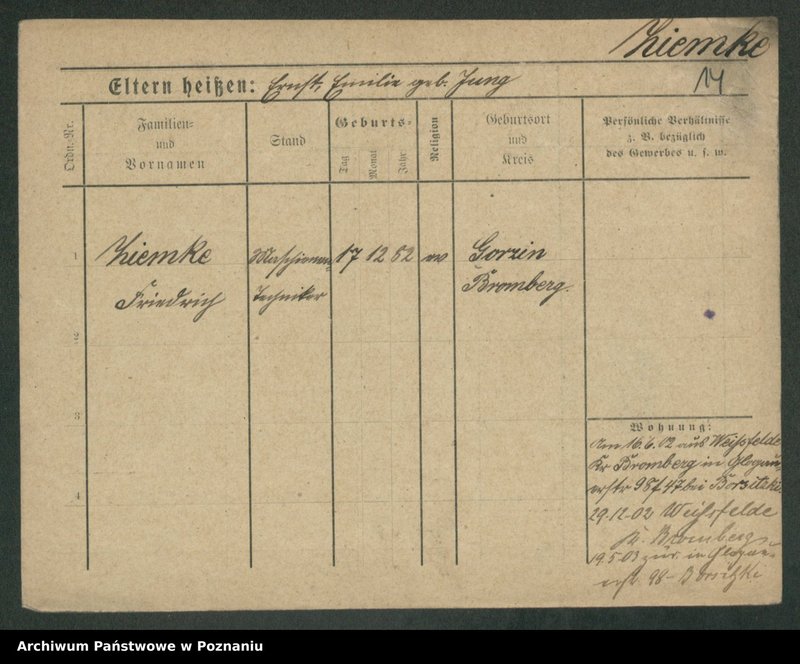 Ziemke
14
Eltern heißen: Ernst, Emilie geb. Jung
Ordn.-Nr.
Familien-
und
Vornamen
Stand
Geburts-
Tag
Monat
Jahr
Religion
Geburtsort
und
Kreis
Persönliche Verhältnisse
z. B. bezüglich
des Gewerbes u. s. w.
1
Ziemke
Friedrich
Maschienen
Techniker
17 12 82 ev
Gorzin
Bromberg.
2
3
4
Wohnung:
Am 16.6.02 aus Weißfelde
Kr Bromberg in Glogau
erstr 98 bei
29.12.02 Weißfelde
Kr. Bromberg
19.5.03 zur. in Glogau-
erstr. 98
Archiwum Państwowe w Poznaniu